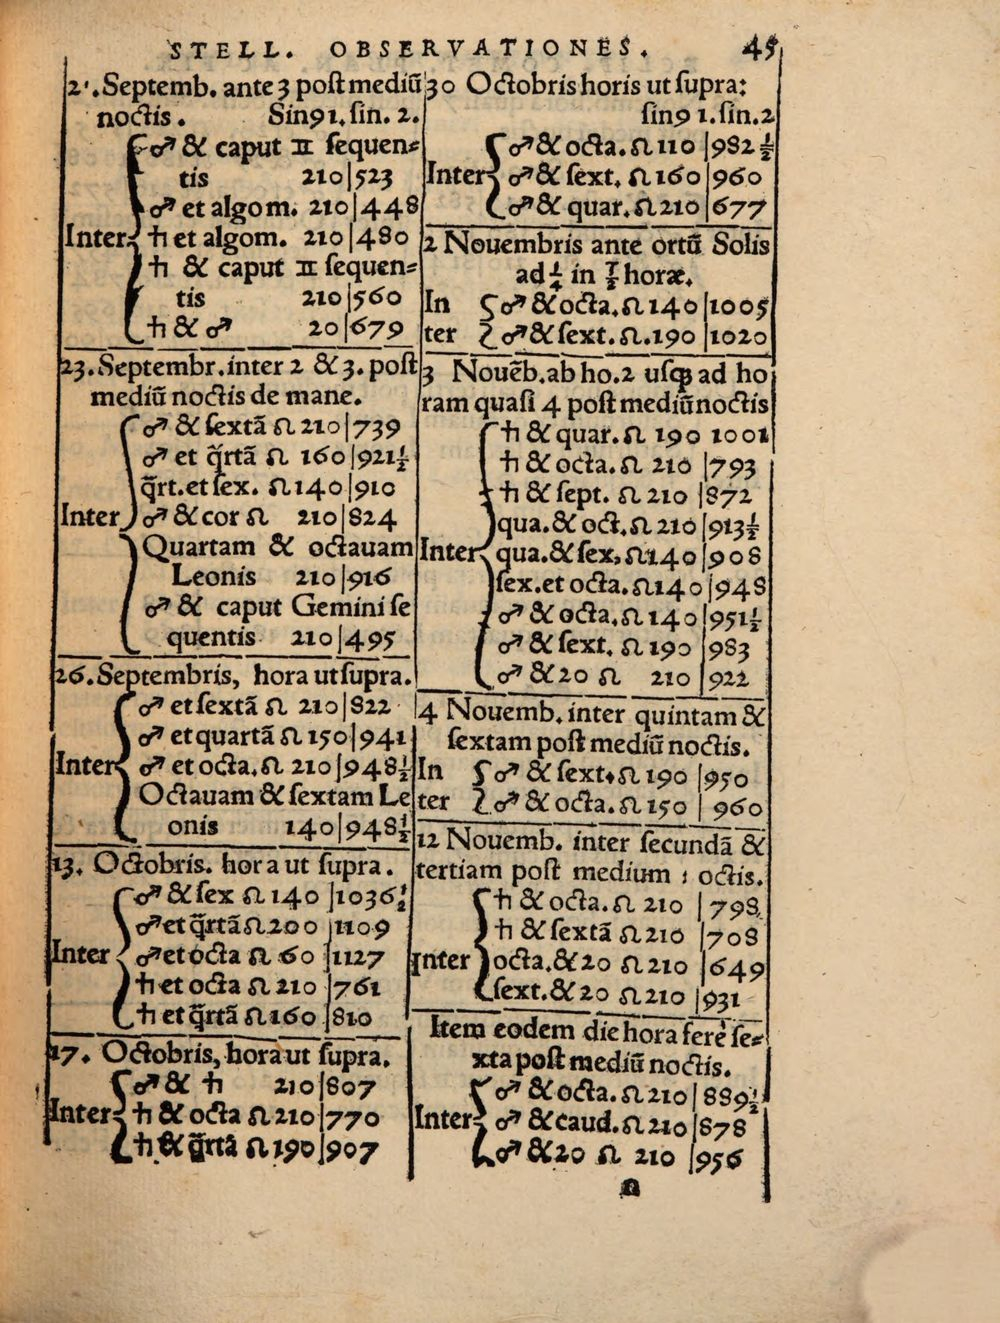 STELL. OBSERVATIONES. 45
2'.Septemb. ante 3 poſt mediũ
noctis. Sin9 1. ſin. 2.
♂ & caput ♊ ſequen⸗
tis 210|523
♂ et algom. 210|448
Inter ♄ et algom. 210|480
♄ & caput ♊ ſequen⸗
tis 210|560
♄ & ♂ 20|679
23. Septembr. inter 2 & 3. poſt
mediũ noctis de mane.
♂ & ſextã ♌ 210|739
♂ et q̃rtã ♌ 160|921½
q̃rt. et ſex. ♌ 140|910
Inter ♂ & cor ♌ 210|824
Quartam & octauam
Leonis 210|916
♂ & caput Gemini ſe
quentis 210|495
26. Septembris, hora ut ſupra.
♂ et ſextã ♌ 210|822
♂ et quartã ♌ 150|941
Inter ♂ et octa. ♌ 210|948½
Octauam & ſextam Le
onis 140|948½
13. Octobris. hora ut ſupra.
♂ & ſex ♌ 140|1036½
♂ et q̃rtã ♌ 200|1109
Inter ♂ et octa ♌ 60|1127
♄ et octa ♌ 210|761
♄ et q̃rtã ♌ 160|810
17. Octobris, hora ut ſupra.
♂ & ♄ 210|807
Inter ♄ & octa ♌ 210|770
♄ & q̃rtã ♌ 190|907
30 Octobris horis ut ſupra:
ſin9 1. ſin. 2
♂ & octa. ♌ 110|982½
Inter ♂ & ſext. ♌ 160|960
♂ & quar. ♌ 210|677
2 Nouembris ante ortũ Solis
ad ¼ in ⅞ horæ.
In ♂ & octa. ♌ 140|1005
ter ♂ & ſext. ♌. 190|1020
3 Nouẽb. ab ho. 2 uſq; ad ho
ram quaſi 4 poſt mediũ noctis
♄ & quar. ♌ 190 1001
♄ & octa. ♌ 210|793
♄ & ſept. ♌ 210|872
qua. & oct. ♌ 210|913½
Inter qua. & ſex. ♌ 140|908
ſex. et octa. ♌ 140|948
♂ & octa. ♌ 140|951½
♂ & ſext. ♌ 190|983
♂ & 20 ♌ 210|922
4 Nouemb. inter quintam &
ſextam poſt mediũ noctis.
In ♂ & ſext. ♌ 190|950
ter ♂ & octa. ♌ 150|960
12 Nouemb. inter ſecundã &
tertiam poſt medium octis.
♄ & octa. ♌ 210|798
♄ & ſextã ♌ 210|708
Inter octa. & 20 ♌ 210|649
ſext. & 20 ♌ 210|931
Item eodem die hora ferè ſe⸗
xta poſt mediũ noctis.
♂ & octa. ♌ 210|889½
Inter ♂ & caud. ♌ 210|878
♂ & 20 ♌ 210|956